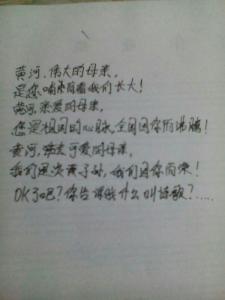 黄河，伟大的母亲，
是您哺育着我们长大！
黄河，亲爱的母亲，
您是祖国的心脉，全国因你而沸腾！
黄河，可爱的母亲，
我们是炎黄子孙，我们因你而荣！
OK了吧？你告诉我什么叫诗歌？……